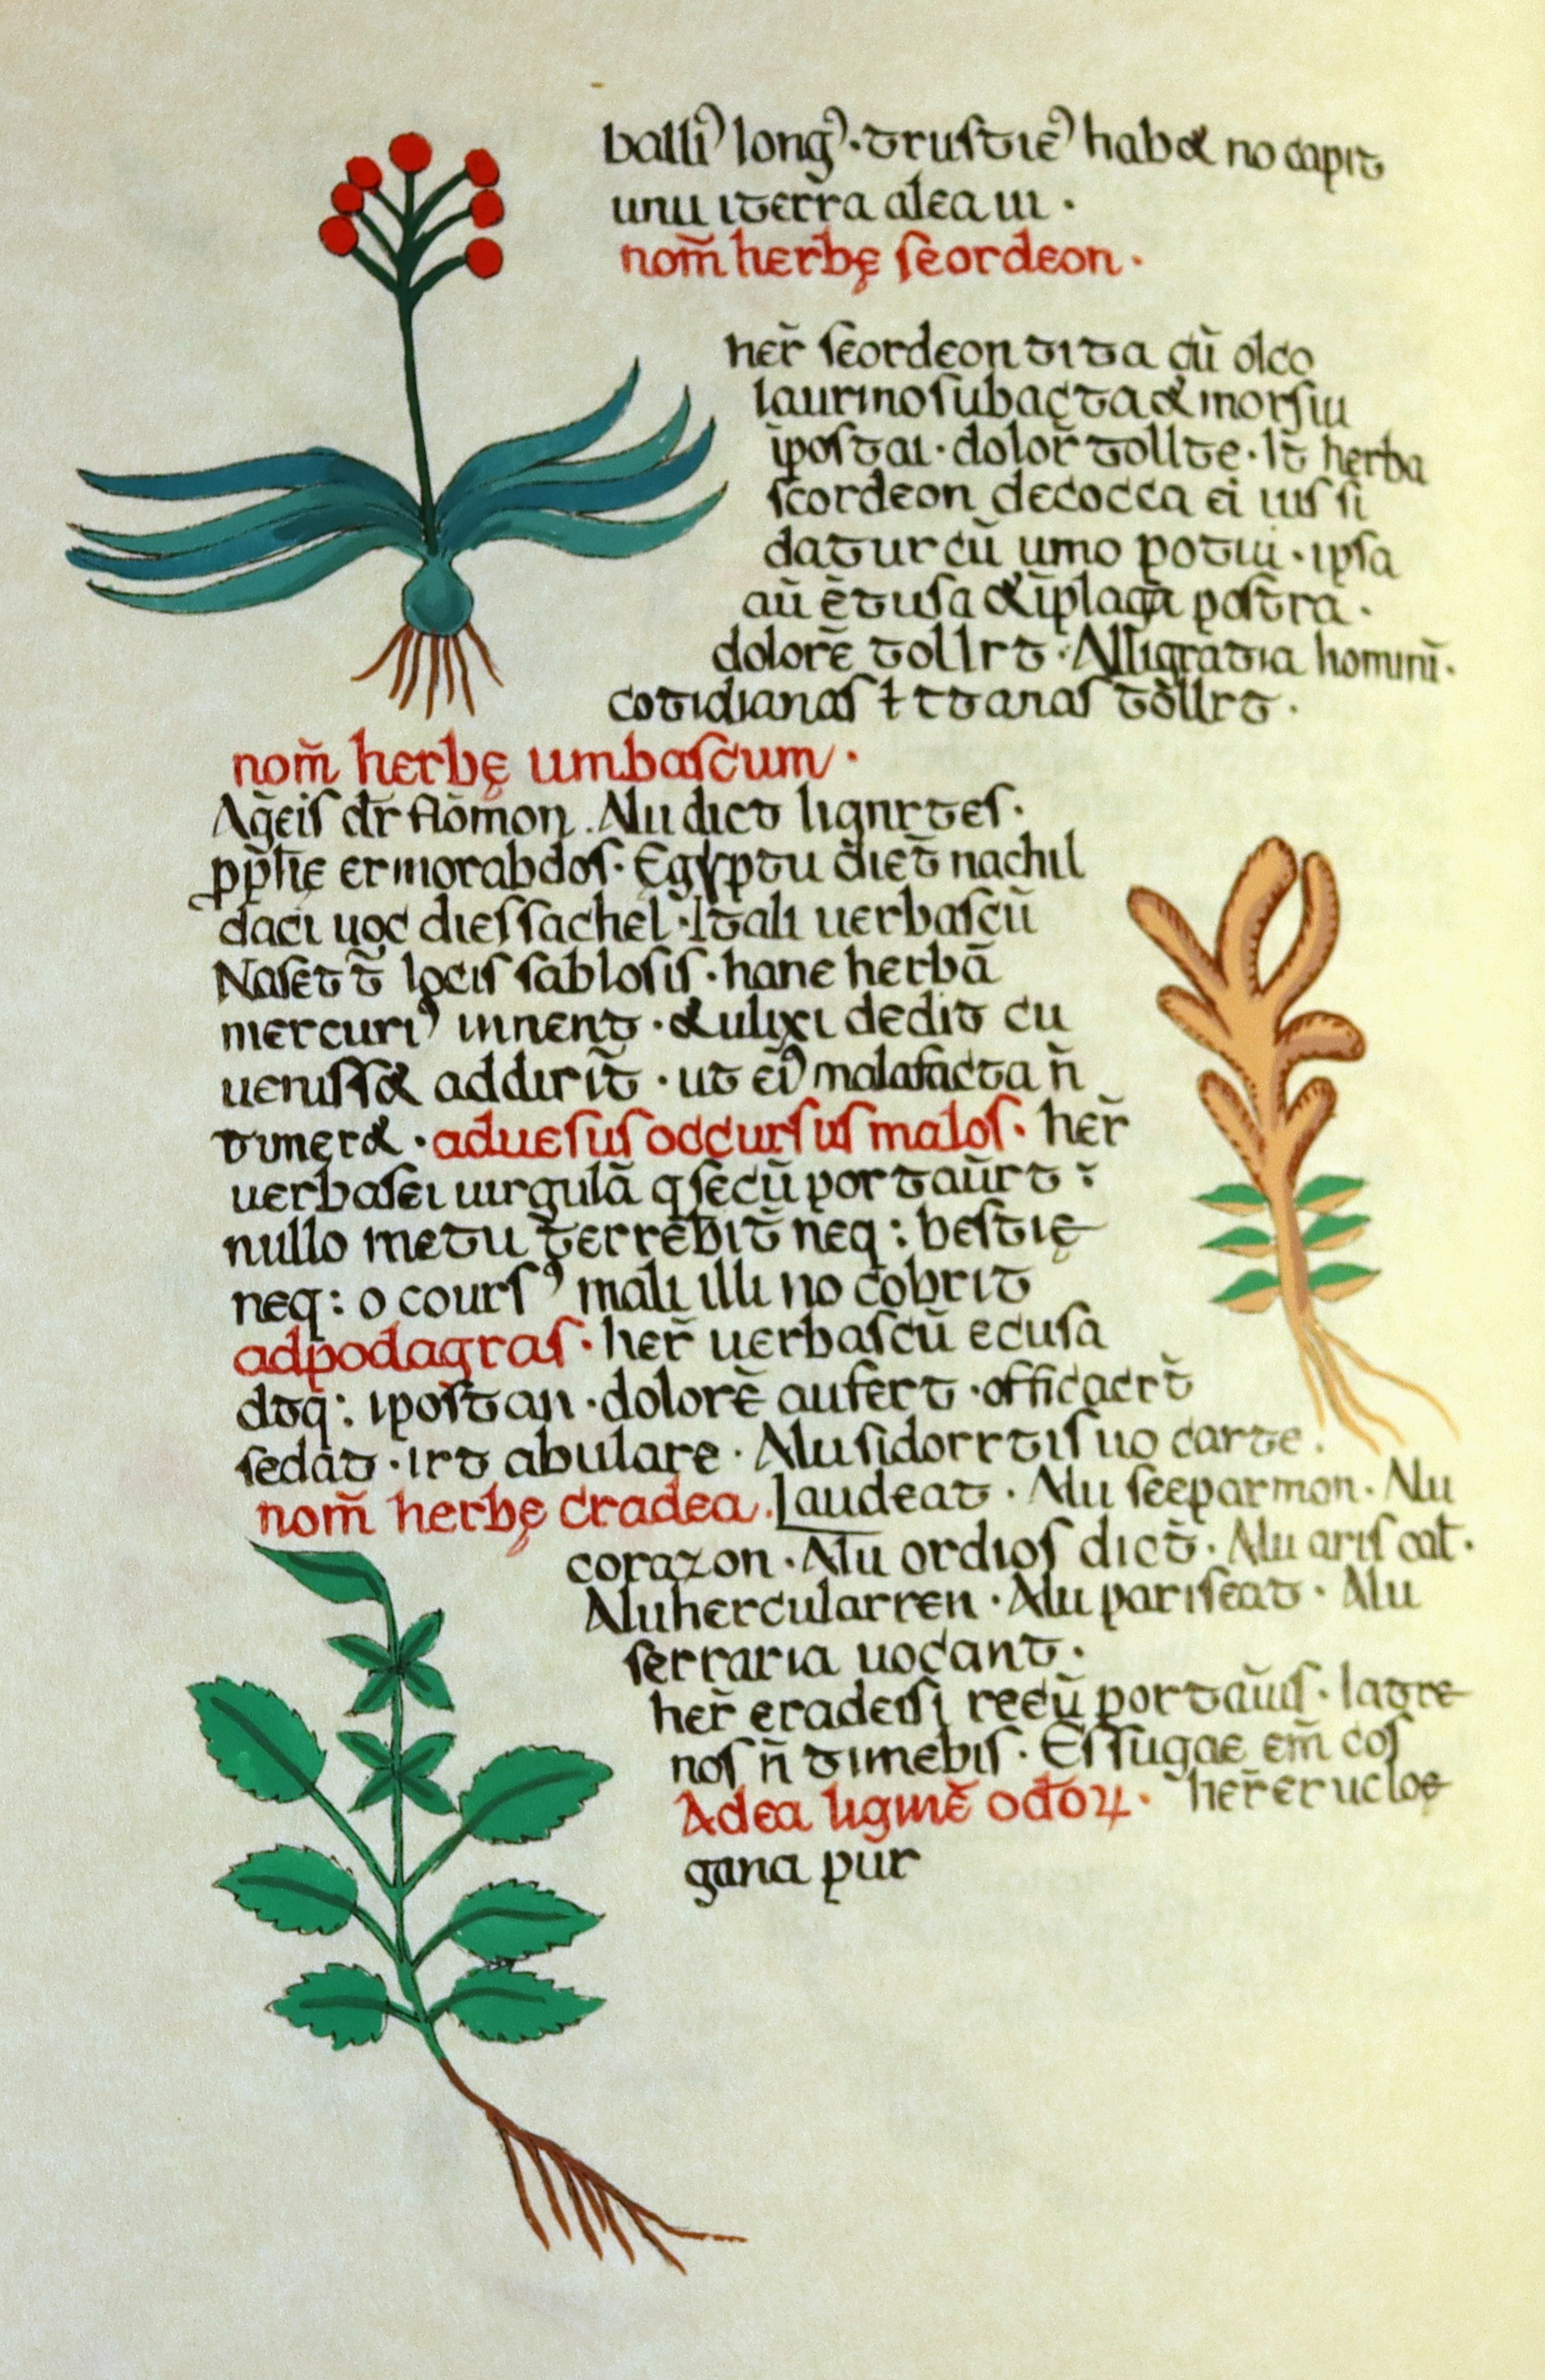 balliꝰ longꝰ· trustieꝰ hab& no capit
unu iterr̄a alea III ·
nom̄ herbę scordeon ·
her̄ scordeon trita cū olco
laurino subacta & morsiu
īpostai · dolor̄ tollte · It̄ herba
scordeon decocca ei ius si
datur cū umo potui · ipsa
aū ētusa & īplaga postra ·
dolorē tollrt · Alligratia hominī ·
cotidianas ł ttanas tollrt ·
nom̄ herbę umbascum ·
Ag̅eis dr̄ flōmon . Alu dict lignrtes ·
pp̄hę ermorabdos · Egyptu diet̄ nachil
daci uoc dies sachel · Itali uerbascū
Naset t̄ locis sablosis · hane herbā
mercuriꝰ innent · & ulixi dedit cu
uenиss& addirit̄ · ut eiꝰ malafacta n̄
timer& · aduesus occursus malos · her̄
uerbasci uirgulā q secū portaūrt :
nullo metu terrebit̄ neq : bestię
neq : o coursꝰ mali illi no cobrit
adpodagras · her̄ uerbascū ecusa
dtq : ipostan · dolorē aufert · officacrt̄
sedat · irt abulare · Alu sidorrtis uo carte .
nom̄ herbę cradea . Laudeat · Alu seeparmon · Alu
corazon · Alu ordios dict̄ · Alu aris cat ·
Alu hercularren · Alu pariseat · Alu
serraria uocant ·
her̄ eradeisi recū portauis · latre
nos n̄ timebis · Effugae em̄ cos
Adea ligmē odoꝝ · her̄ erucloe
gana pur